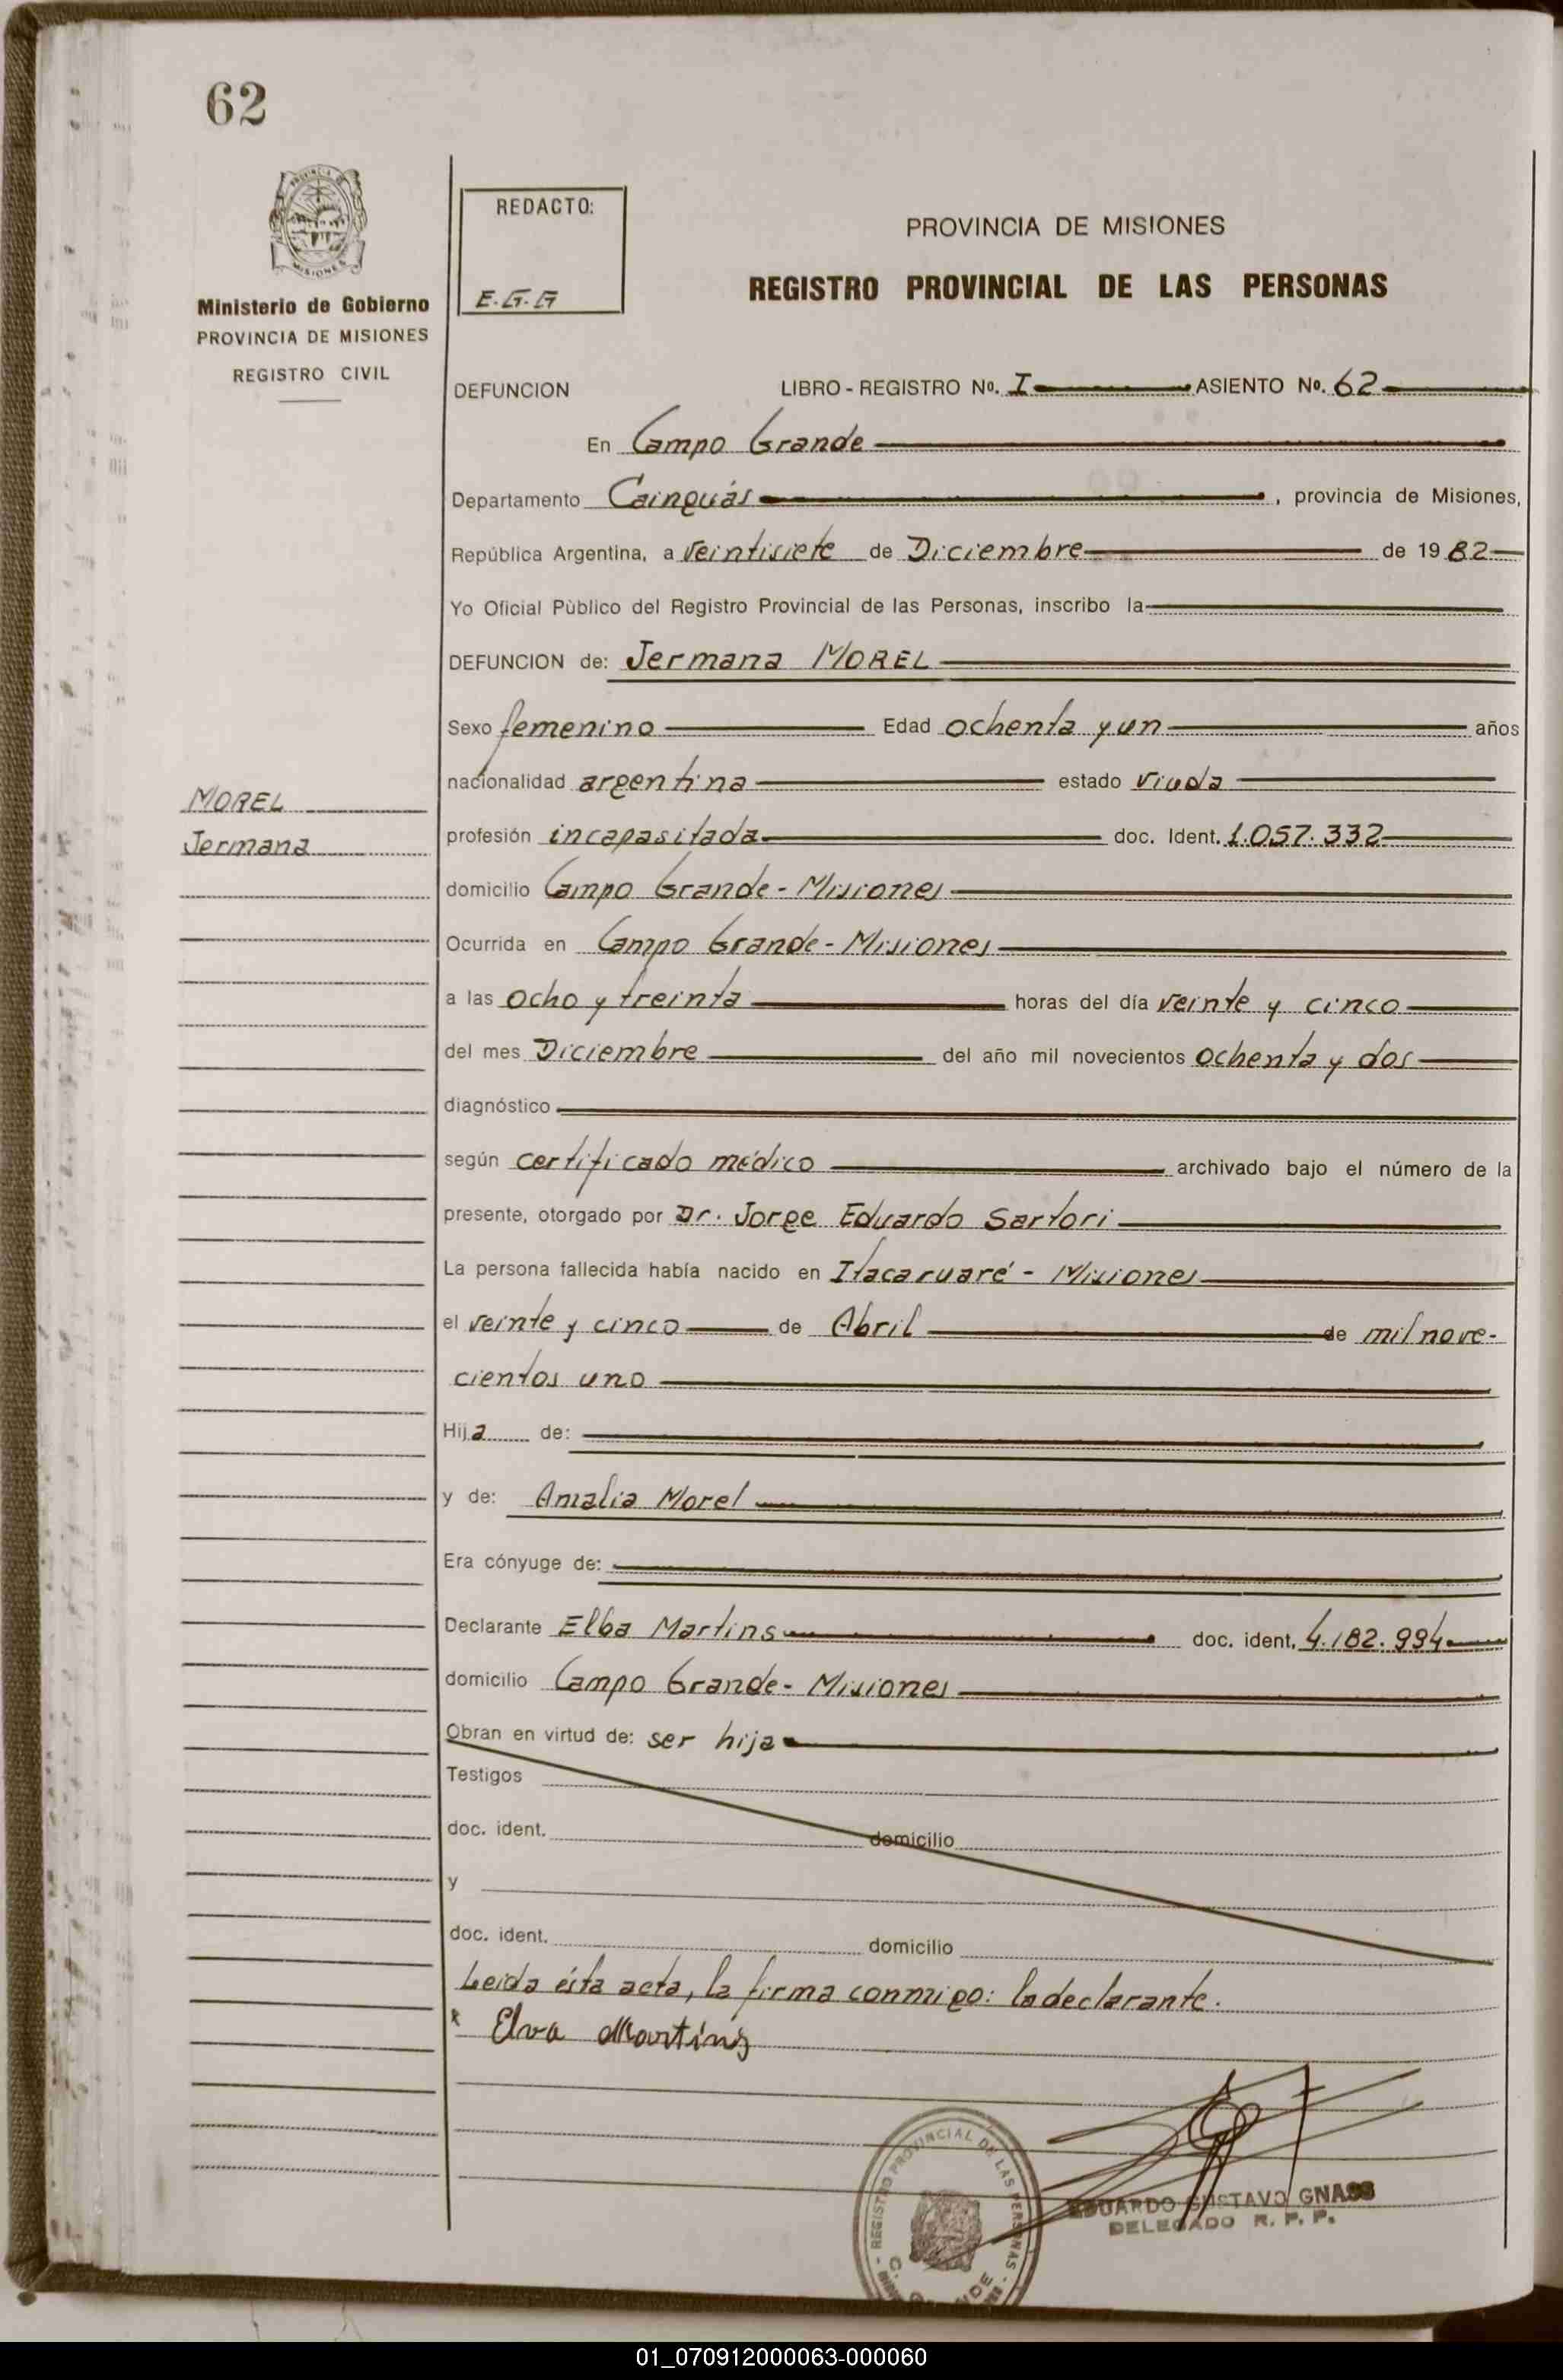 62
Ministerio de Gobierno
PROVINCIA DE MISIONES
REGISTRO CIVIL
REDACTO:
E.G.G
PROVINCIA DE MISIONES
REGISTRO PROVINCIAL DE LAS PERSONAS
DEFUNCION LIBRO - REGISTRO Nº. I ASIENTO Nº. 62
En Campo Grande
Departamento Cainguás, provincia de Misiones,
República Argentina, a veintisiete de Diciembre de 1982
Yo Oficial Pùblico del Registro Provincial de las Personas, inscribo la
DEFUNCION de: Jermana MOREL
Sexo femenino Edad ochenta y un años
nacionalidad argentina estado viuda
MOREL
Jermana
profesión incapasitada doc. Ident. 1.057.332
domicilio Campo Grande - Misiones
Ocurrida en Campo Grande - Misiones
a las ocho y treinta horas del día veinte y cinco
del mes Diciembre del año mil novecientos ochenta y dos
diagnóstico
según certificado médico archivado bajo el número de la
presente, otorgado por Dr. Jorge Eduardo Sartori
La persona fallecida había nacido en Itacaruaré - Misiones
el veinte y cinco de Abril de mil nove-
cientos uno
Hija de:
y de: Amalia Morel
Era cónyuge de:
Declarante Elba Martins doc. ident. 4.182.994
domicilio Campo Grande - Misiones
Obran en virtud de: ser hija
Testigos
doc. ident. domicilio
y
doc. ident. domicilio
Leida ésta acta, la firma conmigo: la declarante.
Elva Martins
REGISTRO PROVINCIAL DE LAS PERSONAS
EDUARDO GUSTAVO GNASS
DELEGADO R. P. P.
01_070912000063-000060